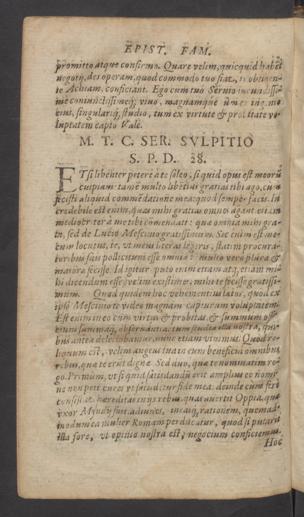 EPIST. FAM.
promitto atque confirmo. Quare velim, quicquid habet
negotij, des operam, quod commodo tuo fiat, te obtinen-
te Achaiam, conficiant. Ego cum tuo Seruio iucundissi-
me coniunctissimeq; viuo, magnamque
singulariq; studio, tum ex virtute & probitate vo-
luptatem capio Vale.
M. T. C. SER. SVLPITIO
S. P. D. 28.
ETsi libenter petere à te soleo, si quid opus est meorũ
cuipiam: tamẽ multo libẽtius gratias tibi ago, cum
fecisti aliquid commẽdatione mea quod semper facis. In
credibile est enim, quas mihi gratias omnes agant etiam
mediocriter à me tibi commendati: quæ omnia mihi gra-
ta, sed de Lucio Mescinio gratissimum. Sic enim est me-
cum locutus, te, vt meas literas legeris, statim procura-
toribus suis pollicitum esse omnia: multo vero plura &
maiora fecisse. Id igitur puto enim etiam atq; etiam mi-
hi dicendum esse velim existimes, mihi te fecisse gratissi-
mum. Quod quidem hoc vehementius lætor, quod ex
ipso Mescinio te video magnam capturum voluptatem.
Est enim in eo cum virtus & probitas, & summum offi-
cium summaq; obseruantia: tum studia illa nostra, qui-
bus antea delectabamur, nunc etiam viuimus. Quod re-
liquum est, velim augeas tua in eum beneficia omnibus
rebus, quæ te erũt dignæ. Sed duo, quæ te nominatim ro-
go. Primum, vt si quid satisdandũ erit amplius eo nomi-
ne non peti cures vt satisdetur fide mea: deinde cum ferè
consistat hæreditas in ijs rebus, quas auertit Oppia, quæ
vxor Myndij fuit, adiuues, ineasq; rationem, quemad-
modum ea mulier Romam perducatur, quod si putarit
illa fore, vt opinio nostra est, negocium conficiemus.
Hoc